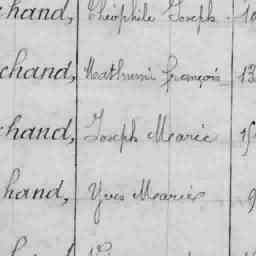 chand, Théophile Joseph 10
chand, Mathurin François 13
chand, Joseph Marie
hand, Yves Marie 9